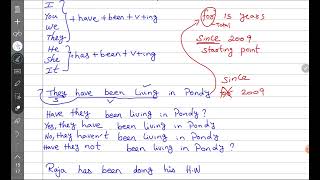 I
You
We
They
+have+been+v+ing
He
She
It
+has+been+v+ing
for 15 years
total
since 2009
starting point
since
for 2009
They have been living in Pondy
S v
Have they been living in Pondy?
Yes, they have been living in Pondy
No, they haven't been living in Pondy
Have they not been living in Pondy?
Raja has been doing his H.W